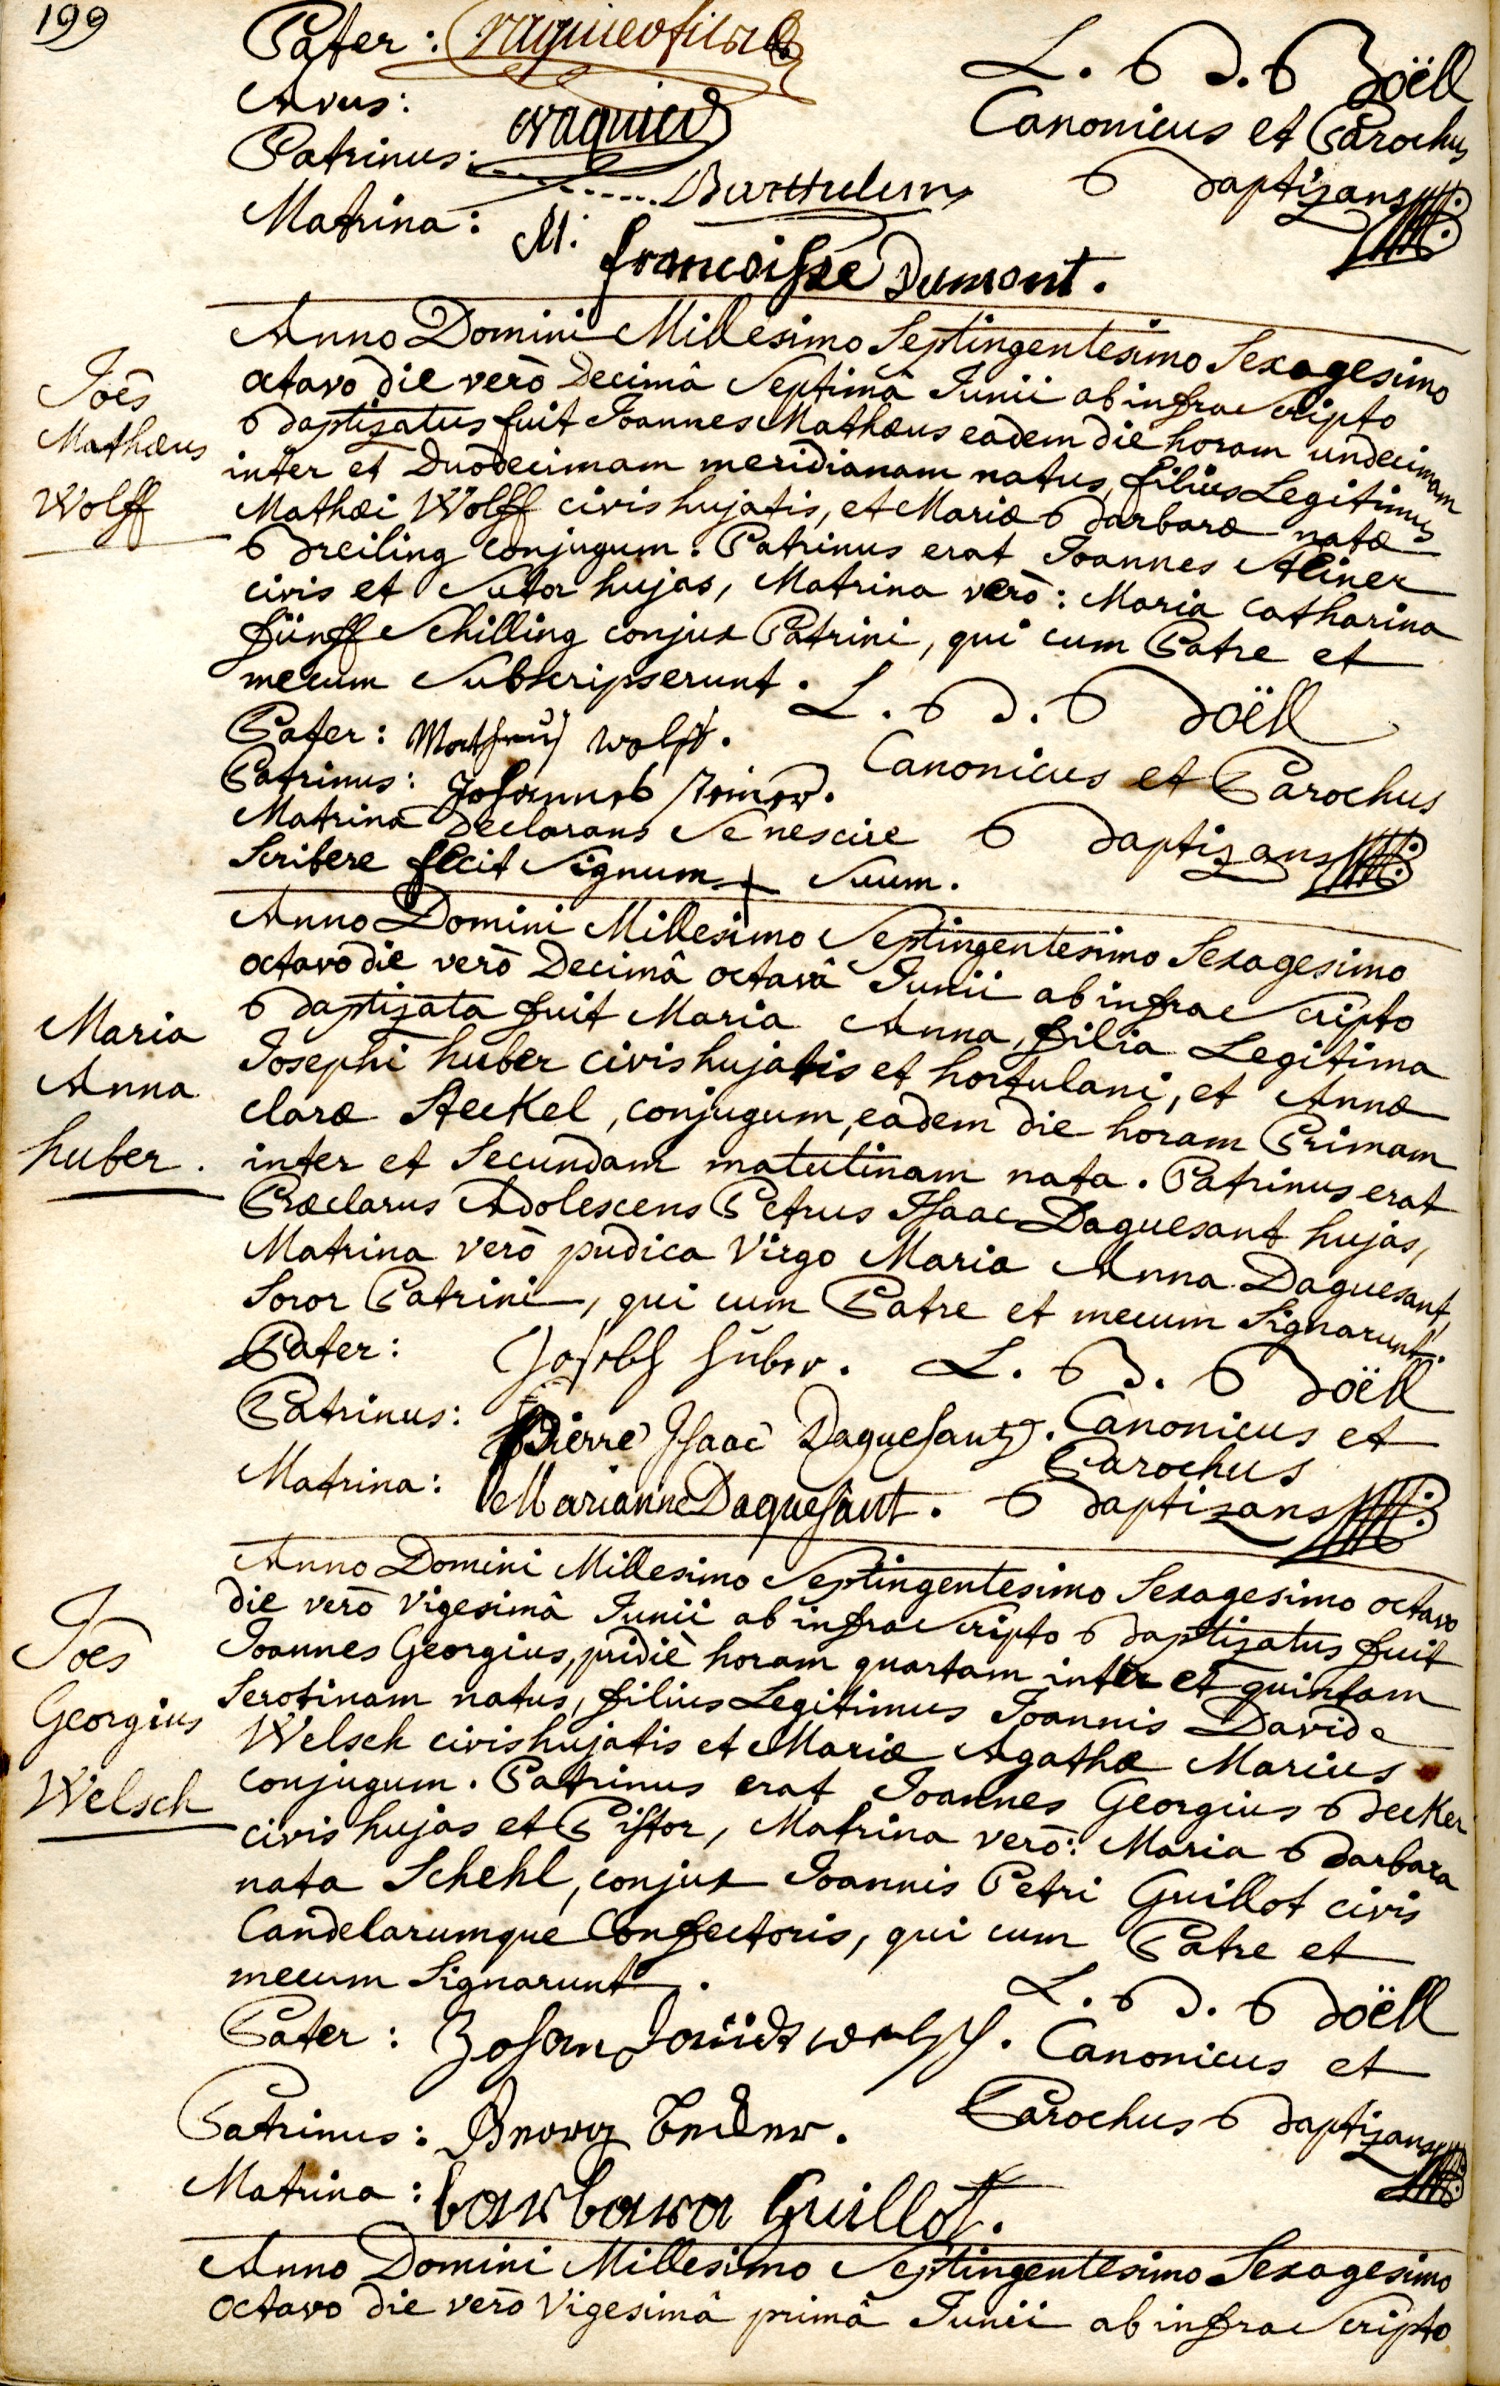 199
Pater: vaguieofils
L. B. Böell
Avus:
vaguier
Canonicus et Parochus
Patrinus:
Barthelemy
Baptizans
Matrina: M. francoisse Dumont.
Anno Domini Millesimo Septingentesimo Sexagesimo
octavo die verò Decimâ Septimâ Junii ab infra Scripto
Baptizatus fuit Joannes Mathæus eadem die horam undecimam
inter et Duodecimam meridianam natus, filius Legitimus
Mathæi Wolff civis hujatis, et Mariæ Barbaræ natæ
Breiling conjugum. Patrinus erat Joannes Steiner
civis et Sutor hujas, Matrina verò: Maria Catharina
fünff Schilling conjux Patrini, qui cum Patre et
mecum Subscripserunt.
Joes
Mathæus
Wolff
L. B. Böell
Pater: Matheus wolff.
Canonicus et Parochus
Patrinus: Johannes Steiner.
Matrina Declarans Se nescire
Baptizans
Scribere fecit Signum + Suum.
Anno Domini Millesimo Septingentesimo Sexagesimo
octavo die verò Decimâ octavâ Junii ab infra Scripto
Baptizata fuit Maria Anna, filia Legitima
Josephi huber civis hujatis et hortulani, et Annæ
claræ Steckel, conjugum, eadem die horam Primam
inter et Secundam matutinam nata. Patrinus erat
Præclarus Adolescens Petrus Isaac Daguesant hujas,
Matrina verò pudica Virgo Maria Anna Daguesant,
Soror Patrini, qui cum Patre et mecum Signarunt.
Maria
Anna
huber.
Pater: Joseph Huber.
L. B. Böell
Patrinus: Pierre Isaac Daguesant.
Canonicus et
Parochus
Matrina: Marianne Daguesant.
Baptizans
Anno Domini Millesimo Septingentesimo Sexagesimo octavo
die verò Vigesimâ Junii ab infra Scripto Baptizatus fuit
Joannes Georgius, pridiè horam quartam inter et quintam
Serotinam natus, filius Legitimus Joannis David
Welsch civis hujatis et Mariæ Agathæ Marius
conjugum. Patrinus erat Joannes Georgius Becker
civis hujas et Pistor, Matrina verò: Maria Barbara
nata Schehl, conjux Joannis Petri Guillot civis
Candelarumque Confectoris, qui cum Patre et
mecum Signarunt.
Joes
Georgius
Welsch
L. B. Böell
Pater: Johan david welsch.
Canonicus et
Patrinus: Georg Becker.
Parochus Baptizans
Matrina: barbara Guillot.
Anno Domini Millesimo Septingentesimo Sexagesimo
octavo die verò Vigesimâ primâ Junii ab infra Scripto